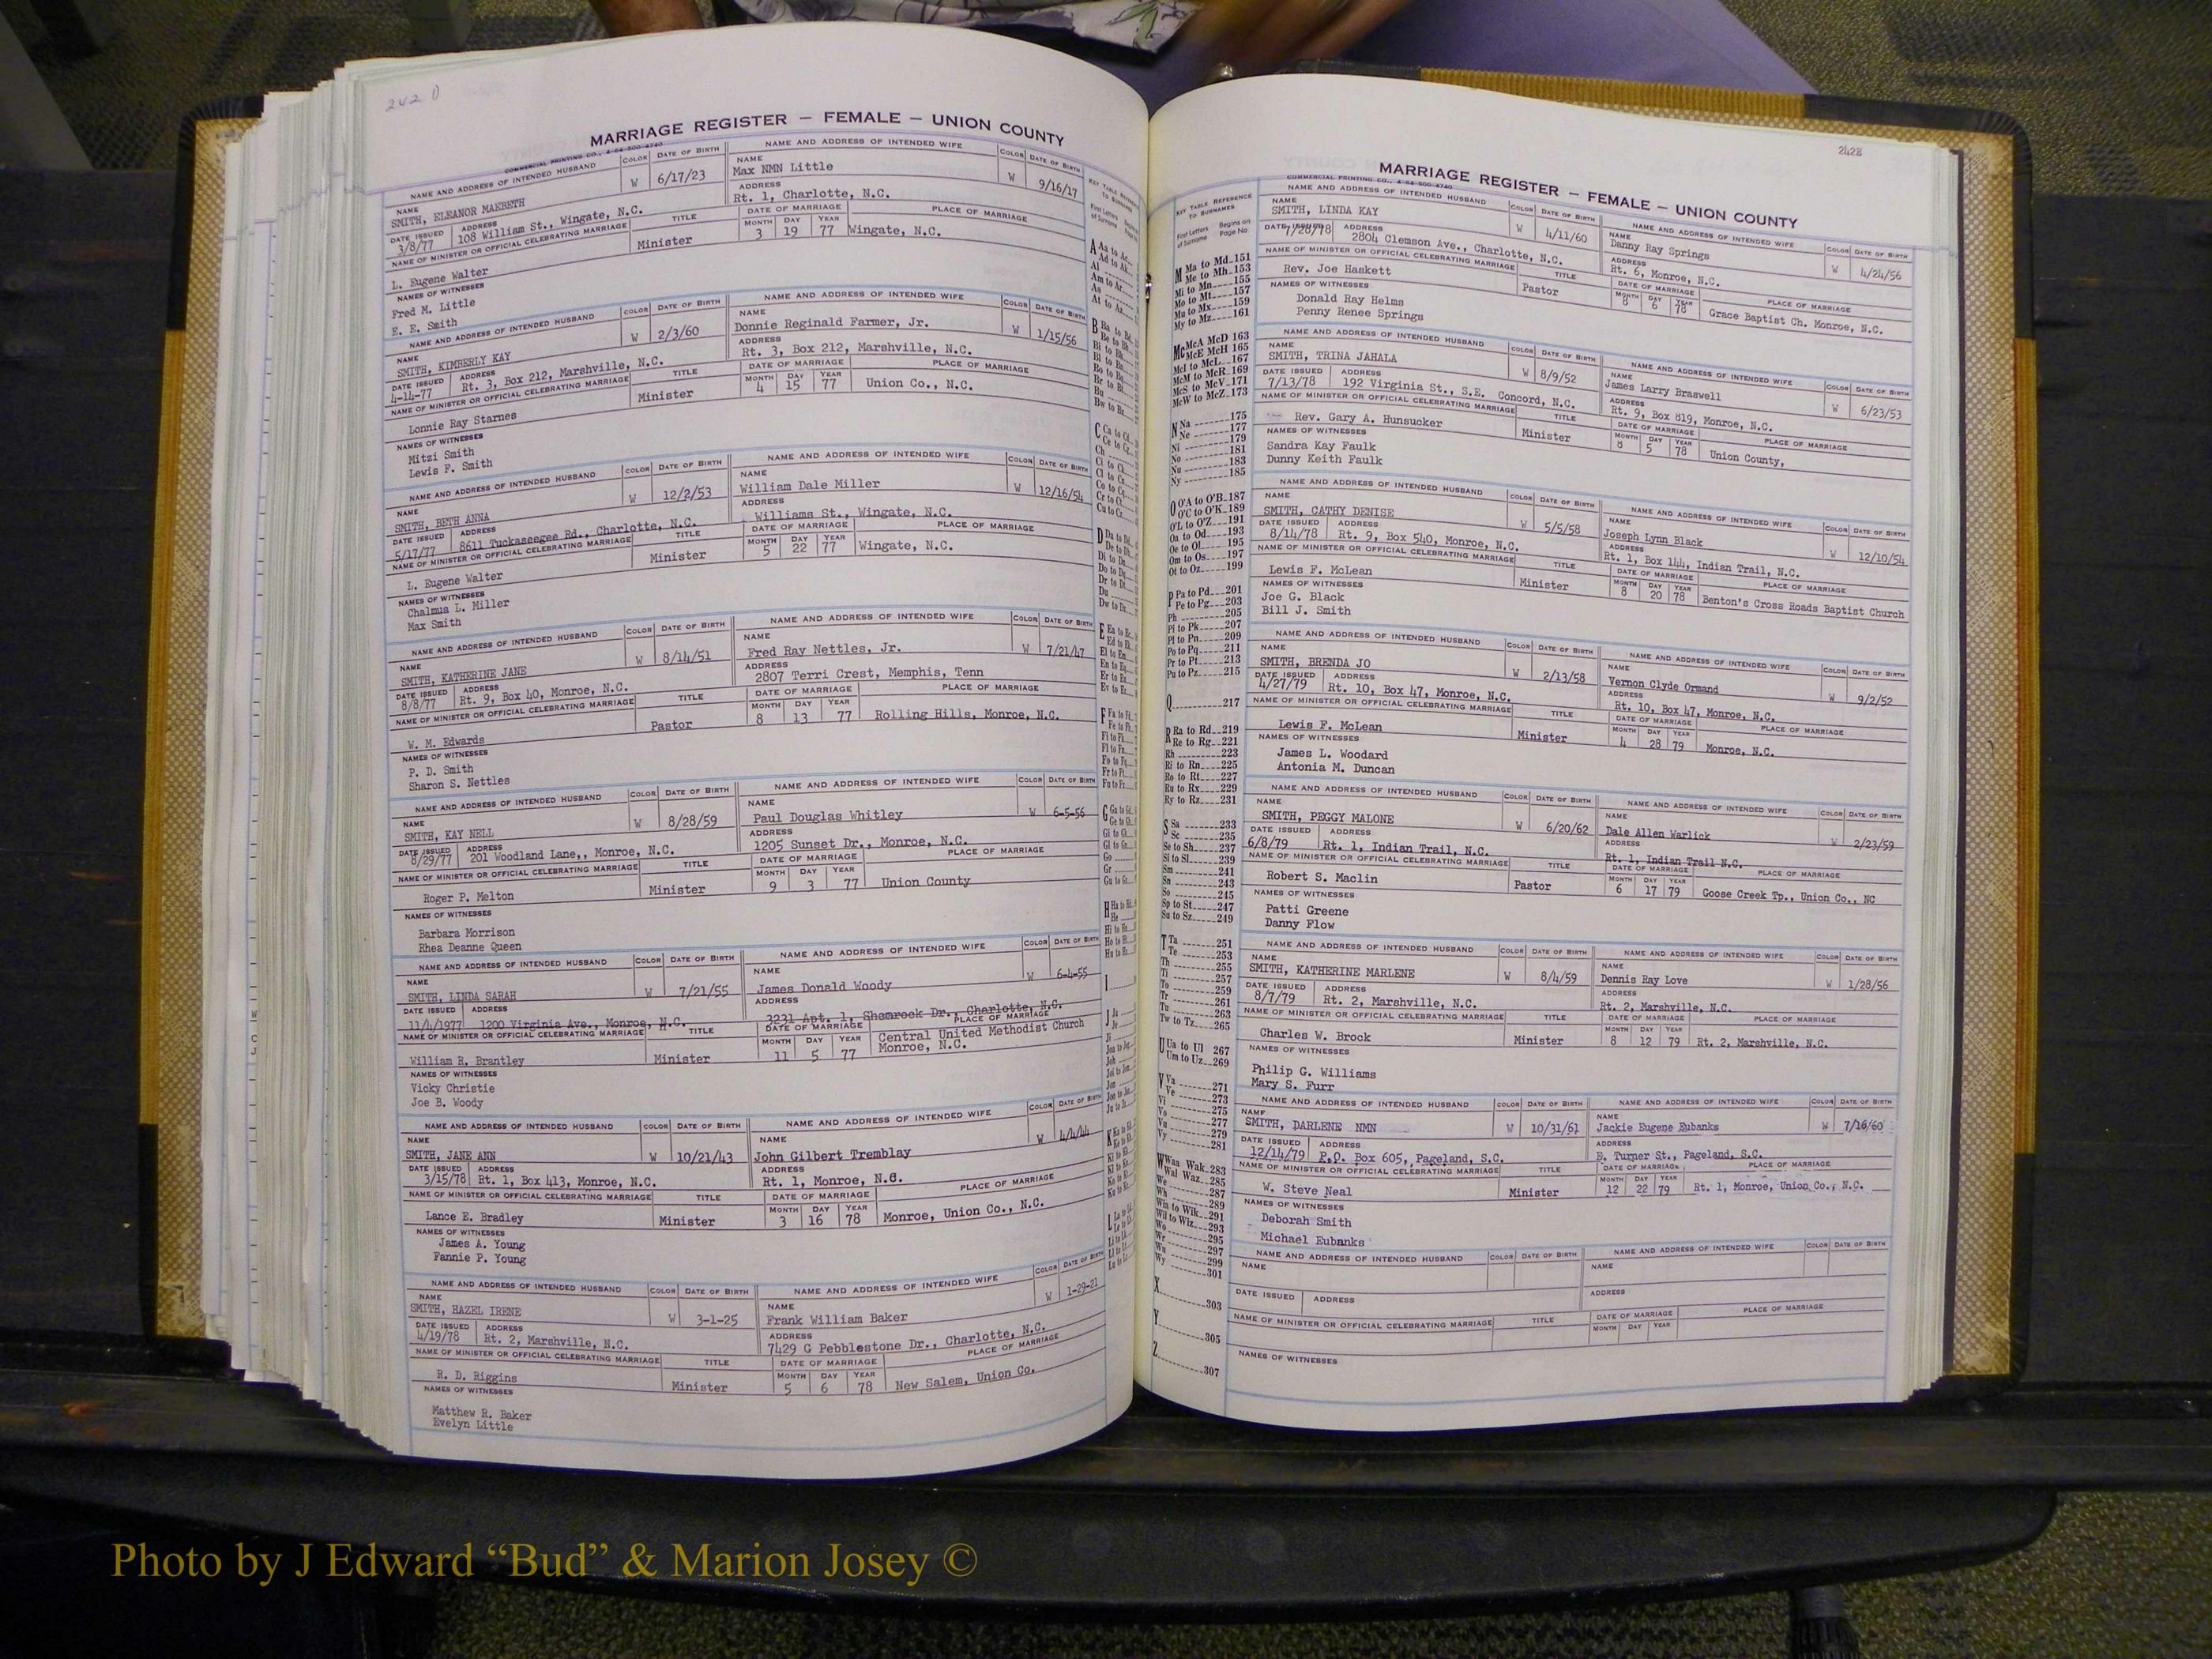 242 D
MARRIAGE REGISTER — FEMALE — UNION COUNTY
COMMERCIAL PRINTING CO., 4-64-500-4740
NAME AND ADDRESS OF INTENDED HUSBAND COLOR DATE OF BIRTH NAME AND ADDRESS OF INTENDED WIFE COLOR DATE OF BIRTH
NAME SMITH, ELEANOR MAEBETH W 6/17/23 NAME Max NMN Little W 9/16/17
DATE ISSUED 3/8/77 ADDRESS 108 William St., Wingate, N.C. ADDRESS Rt. 1, Charlotte, N.C.
NAME OF MINISTER OR OFFICIAL CELEBRATING MARRIAGE TITLE DATE OF MARRIAGE PLACE OF MARRIAGE
L. Eugene Walter Minister MONTH 3 DAY 19 YEAR 77 Wingate, N.C.
NAMES OF WITNESSES
Fred M. Little
E. E. Smith
NAME AND ADDRESS OF INTENDED HUSBAND COLOR DATE OF BIRTH NAME AND ADDRESS OF INTENDED WIFE COLOR DATE OF BIRTH
NAME SMITH, KIMBERLY KAY W 2/3/60 NAME Donnie Reginald Farmer, Jr. W 1/15/56
DATE ISSUED 4-14-77 ADDRESS Rt. 3, Box 212, Marshville, N.C. ADDRESS Rt. 3, Box 212, Marshville, N.C.
NAME OF MINISTER OR OFFICIAL CELEBRATING MARRIAGE TITLE DATE OF MARRIAGE PLACE OF MARRIAGE
Lonnie Ray Starnes Minister MONTH 4 DAY 15 YEAR 77 Union Co., N.C.
NAMES OF WITNESSES
Mitzi Smith
Lewis F. Smith
NAME AND ADDRESS OF INTENDED HUSBAND COLOR DATE OF BIRTH NAME AND ADDRESS OF INTENDED WIFE COLOR DATE OF BIRTH
NAME SMITH, BETH ANNA W 12/2/53 NAME William Dale Miller W 12/16/54
DATE ISSUED 5/17/77 ADDRESS 8611 Tuckaseegee Rd., Charlotte, N.C. ADDRESS Williams St., Wingate, N.C.
NAME OF MINISTER OR OFFICIAL CELEBRATING MARRIAGE TITLE DATE OF MARRIAGE PLACE OF MARRIAGE
L. Eugene Walter Minister MONTH 5 DAY 22 YEAR 77 Wingate, N.C.
NAMES OF WITNESSES
Chalmus L. Miller
Max Smith
NAME AND ADDRESS OF INTENDED HUSBAND COLOR DATE OF BIRTH NAME AND ADDRESS OF INTENDED WIFE COLOR DATE OF BIRTH
NAME SMITH, KATHERINE JANE W 8/14/51 NAME Fred Ray Nettles, Jr. W 7/21/47
DATE ISSUED 8/8/77 ADDRESS Rt. 9, Box 40, Monroe, N.C. ADDRESS 2807 Terri Crest, Memphis, Tenn
NAME OF MINISTER OR OFFICIAL CELEBRATING MARRIAGE TITLE DATE OF MARRIAGE PLACE OF MARRIAGE
W. M. Edwards Pastor MONTH 8 DAY 13 YEAR 77 Rolling Hills, Monroe, N.C.
NAMES OF WITNESSES
P. D. Smith
Sharon S. Nettles
NAME AND ADDRESS OF INTENDED HUSBAND COLOR DATE OF BIRTH NAME AND ADDRESS OF INTENDED WIFE COLOR DATE OF BIRTH
NAME SMITH, KAY NELL W 8/28/59 NAME Paul Douglas Whitley W 6-5-56
DATE ISSUED 8/29/77 ADDRESS 201 Woodland Lane,, Monroe, N.C. ADDRESS 1205 Sunset Dr., Monroe, N.C.
NAME OF MINISTER OR OFFICIAL CELEBRATING MARRIAGE TITLE DATE OF MARRIAGE PLACE OF MARRIAGE
Roger P. Melton Minister MONTH 9 DAY 3 YEAR 77 Union County
NAMES OF WITNESSES
Barbara Morrison
Rhea Deanne Queen
NAME AND ADDRESS OF INTENDED HUSBAND COLOR DATE OF BIRTH NAME AND ADDRESS OF INTENDED WIFE COLOR DATE OF BIRTH
NAME SMITH, LINDA SARAH W 7/21/55 NAME James Donald Woody W 6-4-55
DATE ISSUED 11/4/1977 ADDRESS 1200 Virginia Ave., Monroe, N.C. ADDRESS 3231 Apt. 1, Shamrock Dr., Charlotte, N.C.
NAME OF MINISTER OR OFFICIAL CELEBRATING MARRIAGE TITLE DATE OF MARRIAGE PLACE OF MARRIAGE
William R. Brantley Minister MONTH 11 DAY 5 YEAR 77 Central United Methodist Church
Monroe, N.C.
NAMES OF WITNESSES
Vicky Christie
Joe B. Woody
NAME AND ADDRESS OF INTENDED HUSBAND COLOR DATE OF BIRTH NAME AND ADDRESS OF INTENDED WIFE COLOR DATE OF BIRTH
NAME SMITH, JANE ANN W 10/21/43 NAME John Gilbert Tremblay W 4/4/44
DATE ISSUED 3/15/78 ADDRESS Rt. 1, Box 413, Monroe, N.C. ADDRESS Rt. 1, Monroe, N.C.
NAME OF MINISTER OR OFFICIAL CELEBRATING MARRIAGE TITLE DATE OF MARRIAGE PLACE OF MARRIAGE
Lance E. Bradley Minister MONTH 3 DAY 16 YEAR 78 Monroe, Union Co., N.C.
NAMES OF WITNESSES
James A. Young
Fannie P. Young
NAME AND ADDRESS OF INTENDED HUSBAND COLOR DATE OF BIRTH NAME AND ADDRESS OF INTENDED WIFE COLOR DATE OF BIRTH
NAME SMITH, HAZEL IRENE W 3-1-25 NAME Frank William Baker W 1-29-21
DATE ISSUED 4/19/78 ADDRESS Rt. 2, Marshville, N.C. ADDRESS 7429 G Pebblestone Dr., Charlotte, N.C.
NAME OF MINISTER OR OFFICIAL CELEBRATING MARRIAGE TITLE DATE OF MARRIAGE PLACE OF MARRIAGE
R. D. Riggins Minister MONTH 5 DAY 6 YEAR 78 New Salem, Union Co.
NAMES OF WITNESSES
Matthew R. Baker
Evelyn Little
242E
MARRIAGE REGISTER — FEMALE — UNION COUNTY
COMMERCIAL PRINTING CO., 4-64-500-4740
KEY TABLE REFERENCE TO SURNAMES
First Letters of Surname Begins on Page No
M Ma to Md 151
Me to Mh 153
Mi to Mn 155
Mo to Mt 157
Mu to Mx 159
My to Mz 161
Mc McA McD 163
McE McH 165
McI to McL 167
McM to McR 169
McS to McV 171
McW to McZ 173
N Na 175
Ne 177
Ni 179
No 181
Nu 183
Ny 185
O O'A to O'B 187
O'C to O'K 189
O'L to O'Z 191
Oa to Od 193
Oe to Ol 195
Om to Os 197
Ot to Oz 199
P Pa to Pd 201
Pe to Pg 203
Ph 205
Pi to Pk 207
Pl to Pn 209
Po to Pq 211
Pr to Pt 213
Pu to Pz 215
Q 217
R Ra to Rd 219
Re to Rg 221
Rh 223
Ri to Rn 225
Ro to Rt 227
Ru to Rx 229
Ry to Rz 231
S Sa 233
Sc 235
Se to Sh 237
Si to Sl 239
Sm 241
Sn 243
So 245
Sp to St 247
Su to Sz 249
T Ta 251
Te 253
Th 255
Ti 257
To 259
Tr 261
Tu 263
Tw to Tz 265
U Ua to Ul 267
Um to Uz 269
V Va 271
Ve 273
Vi 275
Vo 277
Vu 279
Vy 281
W Waa Wak 283
Wal Waz 285
We 287
Wh 289
Wia to Wik 291
Wil to Wiz 293
Wo 295
Wr 297
Wu 299
Wy 301
X 303
Y 305
Z 307
NAME AND ADDRESS OF INTENDED HUSBAND COLOR DATE OF BIRTH NAME AND ADDRESS OF INTENDED WIFE COLOR DATE OF BIRTH
NAME SMITH, LINDA KAY W 4/11/60 NAME Danny Ray Springs W 4/24/56
DATE ISSUED 7/28/78 ADDRESS 2804 Clemson Ave., Charlotte, N.C. ADDRESS Rt. 6, Monroe, N.C.
NAME OF MINISTER OR OFFICIAL CELEBRATING MARRIAGE TITLE DATE OF MARRIAGE PLACE OF MARRIAGE
Rev. Joe Haskett Pastor MONTH 8 DAY 6 YEAR 78 Grace Baptist Ch. Monroe, N.C.
NAMES OF WITNESSES
Donald Ray Helms
Penny Renee Springs
NAME AND ADDRESS OF INTENDED HUSBAND COLOR DATE OF BIRTH NAME AND ADDRESS OF INTENDED WIFE COLOR DATE OF BIRTH
NAME SMITH, TRINA JAHALA W 8/9/52 NAME James Larry Braswell W 6/23/53
DATE ISSUED 7/13/78 ADDRESS 192 Virginia St., S.E. Concord, N.C. ADDRESS Rt. 9, Box 819, Monroe, N.C.
NAME OF MINISTER OR OFFICIAL CELEBRATING MARRIAGE TITLE DATE OF MARRIAGE PLACE OF MARRIAGE
Rev. Gary A. Hunsucker Minister MONTH 8 DAY 5 YEAR 78 Union County,
NAMES OF WITNESSES
Sandra Kay Faulk
Dunny Keith Faulk
NAME AND ADDRESS OF INTENDED HUSBAND COLOR DATE OF BIRTH NAME AND ADDRESS OF INTENDED WIFE COLOR DATE OF BIRTH
NAME SMITH, CATHY DENISE W 5/5/58 NAME Joseph Lynn Black W 12/10/54
DATE ISSUED 8/14/78 ADDRESS Rt. 9, Box 540, Monroe, N.C. ADDRESS Rt. 1, Box 144, Indian Trail, N.C.
NAME OF MINISTER OR OFFICIAL CELEBRATING MARRIAGE TITLE DATE OF MARRIAGE PLACE OF MARRIAGE
Lewis F. McLean Minister MONTH 8 DAY 20 YEAR 78 Benton's Cross Roads Baptist Church
NAMES OF WITNESSES
Joe G. Black
Bill J. Smith
NAME AND ADDRESS OF INTENDED HUSBAND COLOR DATE OF BIRTH NAME AND ADDRESS OF INTENDED WIFE COLOR DATE OF BIRTH
NAME SMITH, BRENDA JO W 2/13/58 NAME Vernon Clyde Ormand W 9/2/52
DATE ISSUED 4/27/79 ADDRESS Rt. 10, Box 47, Monroe, N.C. ADDRESS Rt. 10, Box 47, Monroe, N.C.
NAME OF MINISTER OR OFFICIAL CELEBRATING MARRIAGE TITLE DATE OF MARRIAGE PLACE OF MARRIAGE
Lewis F. McLean Minister MONTH 4 DAY 28 YEAR 79 Monroe, N.C.
NAMES OF WITNESSES
James L. Woodard
Antonia M. Duncan
NAME AND ADDRESS OF INTENDED HUSBAND COLOR DATE OF BIRTH NAME AND ADDRESS OF INTENDED WIFE COLOR DATE OF BIRTH
NAME SMITH, PEGGY MALONE W 6/20/62 NAME Dale Allen Warlick W 2/23/59
DATE ISSUED 6/8/79 ADDRESS Rt. 1, Indian Trail, N.C. ADDRESS Rt. 1, Indian Trail N.C.
NAME OF MINISTER OR OFFICIAL CELEBRATING MARRIAGE TITLE DATE OF MARRIAGE PLACE OF MARRIAGE
Robert S. Maclin Pastor MONTH 6 DAY 17 YEAR 79 Goose Creek Tp., Union Co., NC
NAMES OF WITNESSES
Patti Greene
Danny Flow
NAME AND ADDRESS OF INTENDED HUSBAND COLOR DATE OF BIRTH NAME AND ADDRESS OF INTENDED WIFE COLOR DATE OF BIRTH
NAME SMITH, KATHERINE MARLENE W 8/4/59 NAME Dennis Ray Love W 1/28/56
DATE ISSUED 8/7/79 ADDRESS Rt. 2, Marshville, N.C. ADDRESS Rt. 2, Marshville, N.C.
NAME OF MINISTER OR OFFICIAL CELEBRATING MARRIAGE TITLE DATE OF MARRIAGE PLACE OF MARRIAGE
Charles W. Brock Minister MONTH 8 DAY 12 YEAR 79 Rt. 2, Marshville, N.C.
NAMES OF WITNESSES
Philip G. Williams
Mary S. Furr
NAME AND ADDRESS OF INTENDED HUSBAND COLOR DATE OF BIRTH NAME AND ADDRESS OF INTENDED WIFE COLOR DATE OF BIRTH
NAME SMITH, DARLENE NMN W 10/31/61 NAME Jackie Eugene Eubanks W 7/16/60
DATE ISSUED 12/14/79 ADDRESS P.O. Box 605, Pageland, S.C. ADDRESS B. Turner St., Pageland, S.C.
NAME OF MINISTER OR OFFICIAL CELEBRATING MARRIAGE TITLE DATE OF MARRIAGE PLACE OF MARRIAGE
W. Steve Neal Minister MONTH 12 DAY 22 YEAR 79 Rt. 1, Monroe, Union Co., N.C.
NAMES OF WITNESSES
Deborah Smith
Michael Eubanks
NAME AND ADDRESS OF INTENDED HUSBAND COLOR DATE OF BIRTH NAME AND ADDRESS OF INTENDED WIFE COLOR DATE OF BIRTH
NAME NAME
DATE ISSUED ADDRESS ADDRESS
NAME OF MINISTER OR OFFICIAL CELEBRATING MARRIAGE TITLE DATE OF MARRIAGE PLACE OF MARRIAGE
MONTH DAY YEAR
NAMES OF WITNESSES
Photo by J Edward “Bud” & Marion Josey ©